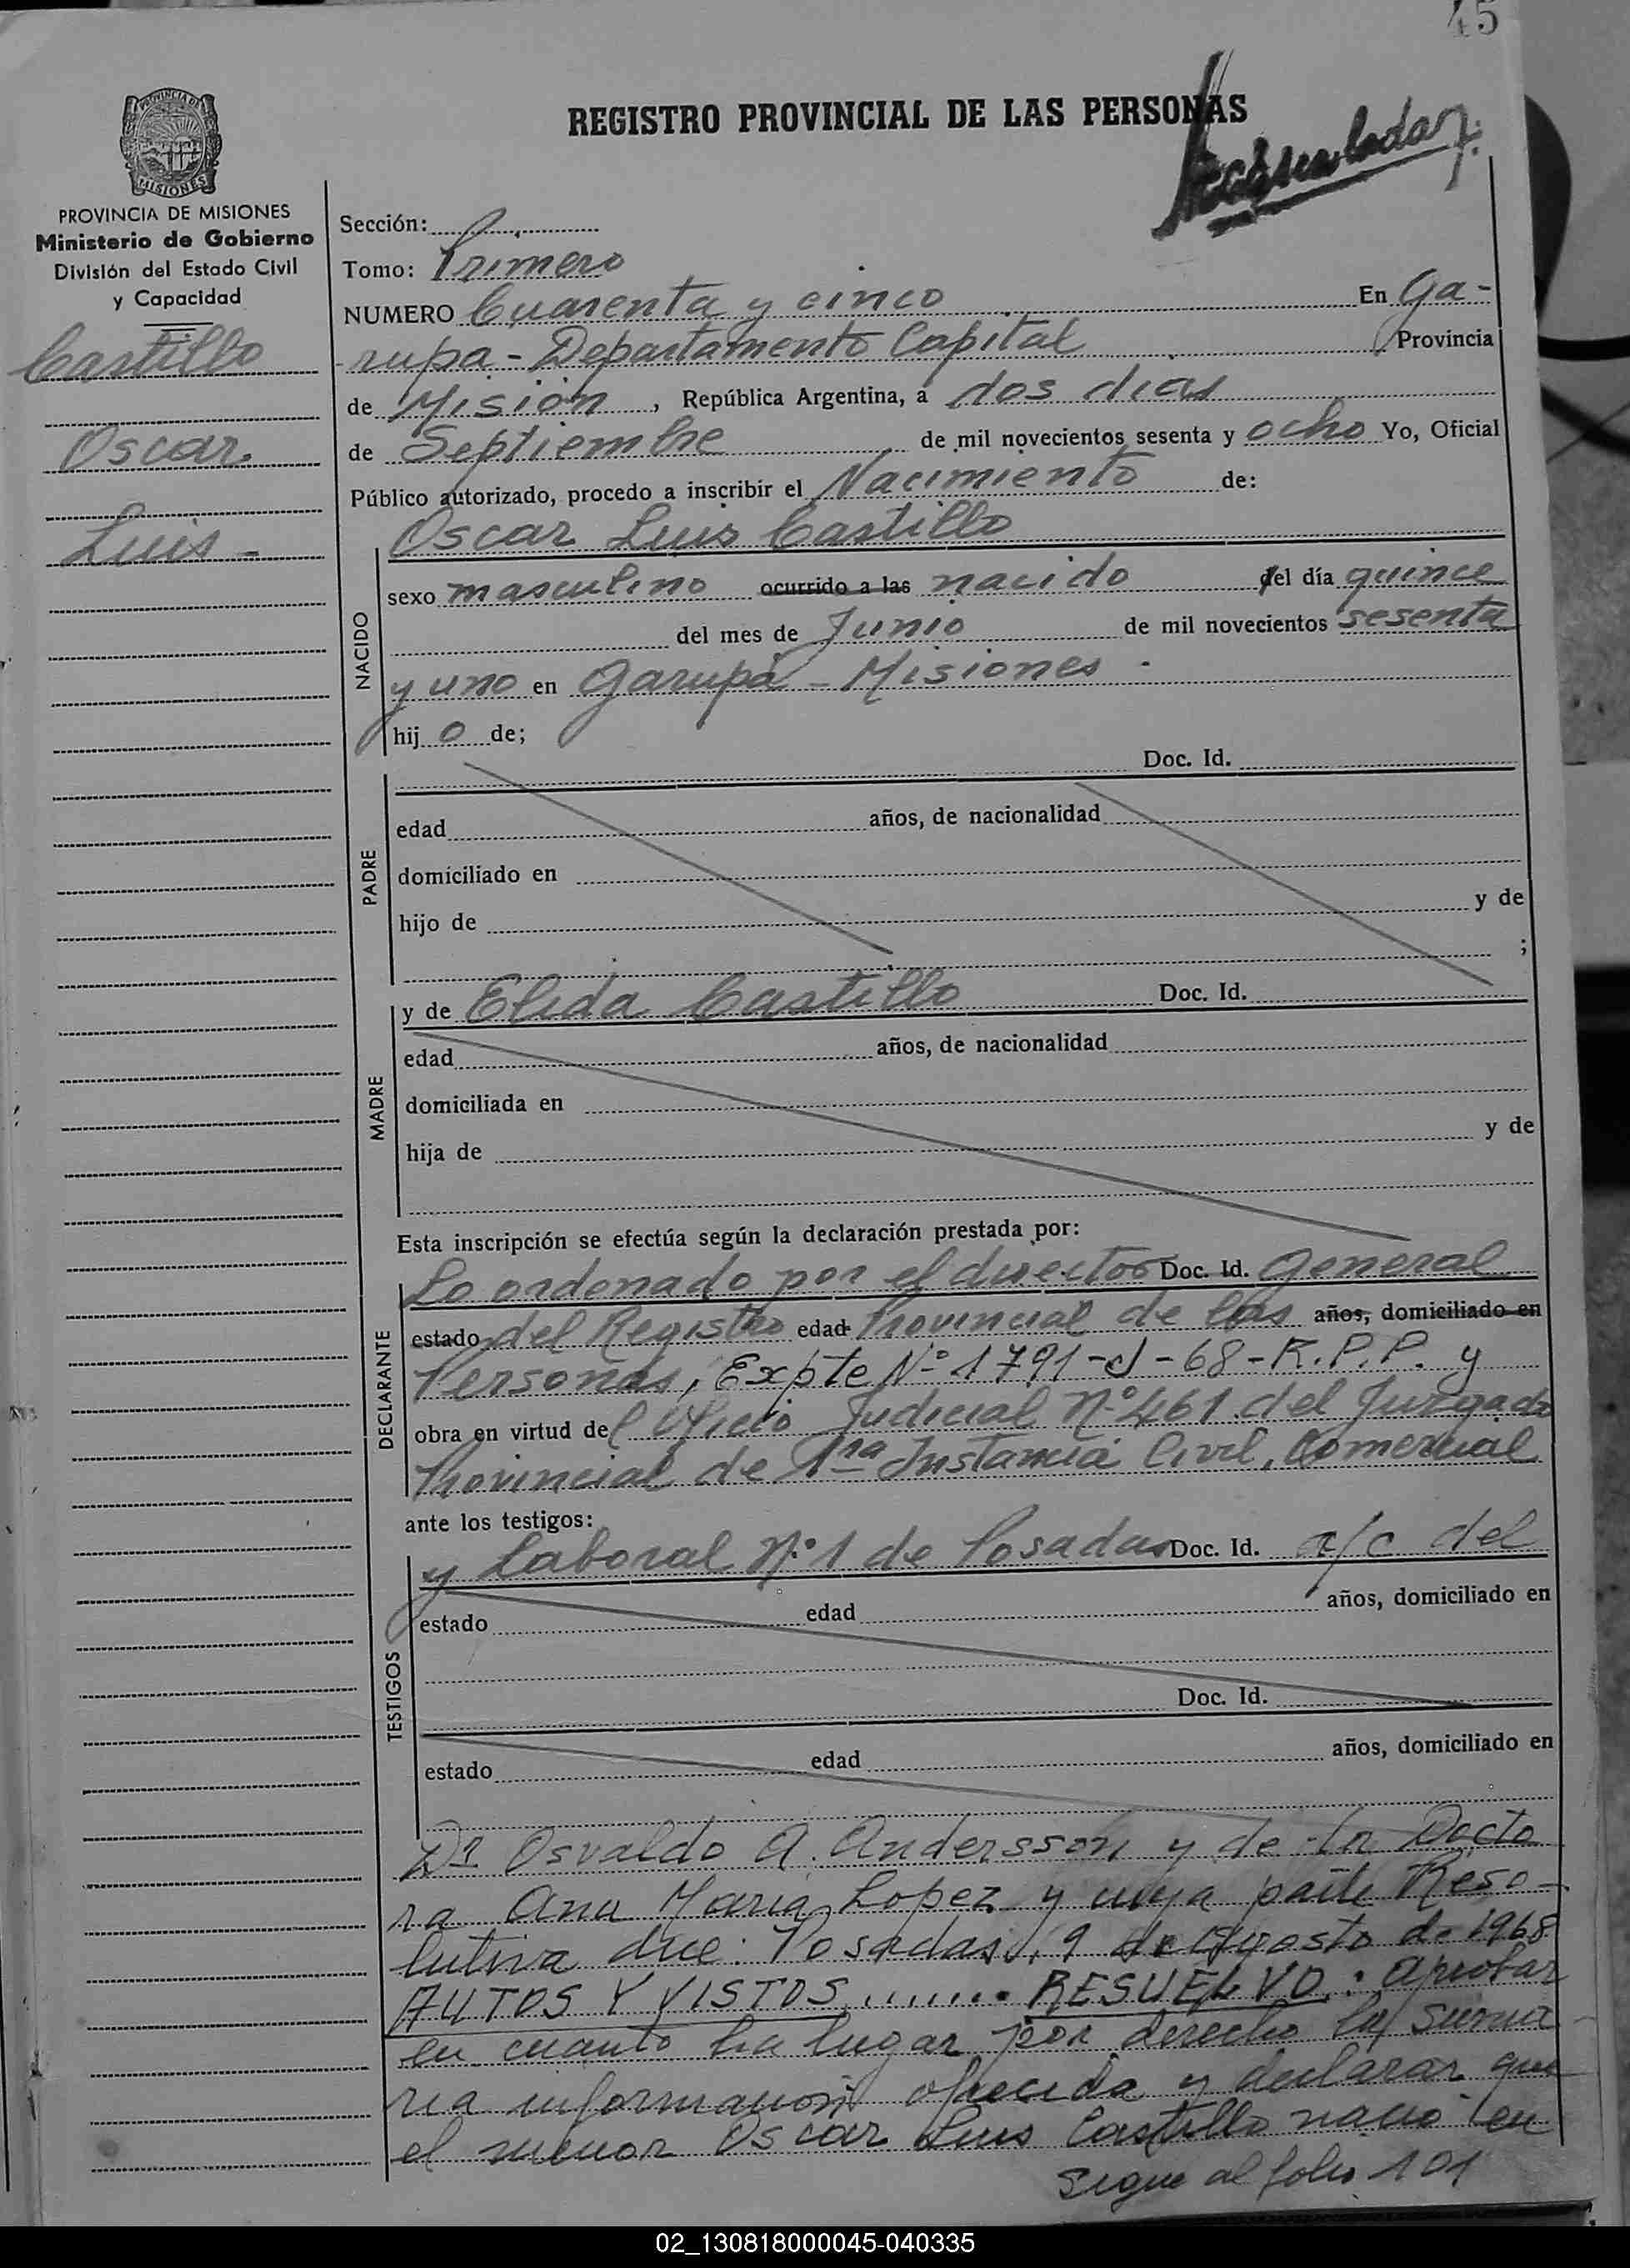 45
REGISTRO PROVINCIAL DE LAS PERSONAS
PROVINCIA DE
MISIONES
PROVINCIA DE MISIONES
Ministerio de Gobierno
División del Estado Civil
y Capacidad
Castillo
Oscar
Luis -
Sección:
Tomo: Primero
NUMERO Cuarenta y cinco En Ga-
rupa - Departamento Capital Provincia
de Misión, República Argentina, a dos dias
de Septiembre de mil novecientos sesenta y ocho Yo, Oficial
Público autorizado, procedo a inscribir el Nacimiento de:
Oscar Luis Castillo
NACIDO
sexo masculino ocurrido a las nacido del día quince
del mes de Junio de mil novecientos sesenta
y uno en Garupá - Misiones -
hij o de;
PADRE
Doc. Id.
edad años, de nacionalidad
domiciliado en
hijo de y de
;
MADRE
y de Elida Castillo Doc. Id.
edad años, de nacionalidad
domiciliada en
hija de y de
Esta inscripción se efectúa según la declaración prestada por:
DECLARANTE
Lo ordenado por el director Doc. Id. General
estado del Registro edad Provincial de las años, domiciliado en
Personas, Expte Nº 1791-J-68-R.P.P. y
obra en virtud del Oficio Judicial Nº 461 del Juzgado
Provincial de 1ra Instancia Civil, Comercial
ante los testigos:
TESTIGOS
y Laboral Nº 1 de Posadas Doc. Id. a/c del
estado edad años, domiciliado en
Doc. Id.
estado edad años, domiciliado en
Dr Osvaldo A. Andersson y de la Docto
ra Ana Maria Lopez y cuya parte Reso-
lutiva dice: Posadas, 9 de Agosto de 1968
AUTOS Y VISTOS ........ RESUELVO: Aprobar
en cuanto ha lugar por derecho la suma
ria informacion ofrecida y declarar que
el menor Oscar Luis Castillo nacio en
Sigue al folio 101
02_130818000045-040335